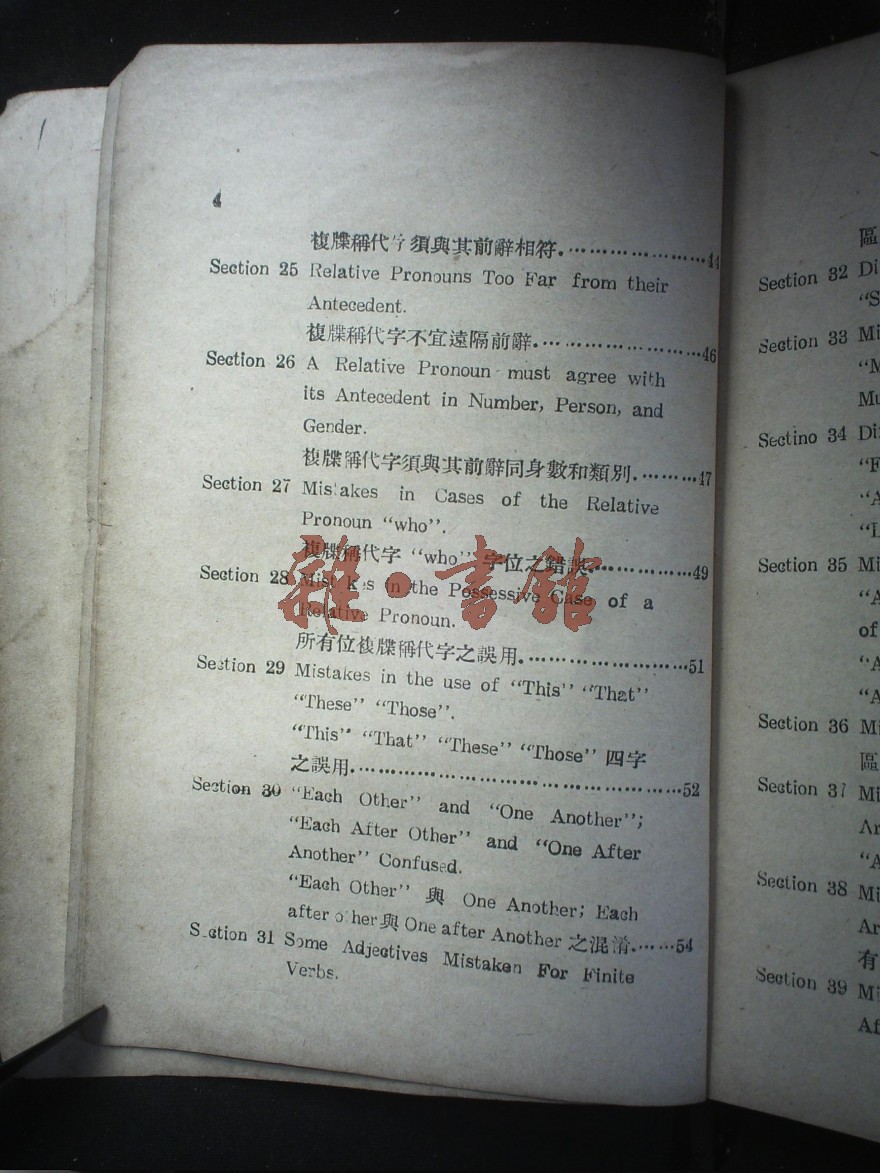 4
複牒稱代字須與其前辭相符.…………………44
Section 25 Relative Pronouns Too Far from their
Antecedent.
複牒稱代字不宜遠隔前辭.……………………46
Section 26 A Relative Pronoun must agree with
its Antecedent in Number, Person, and
Gender.
複牒稱代字須與其前辭同身數和類別.………47
Section 27 Mistakes in Cases of the Relative
Pronoun “who”.
複牒稱代字 “who” 字位之錯誤.……………49
Section 28 Mistakes in the Possessive Case of a
Relative Pronoun.
所有位複牒稱代字之誤用.……………………51
Section 29 Mistakes in the use of “This” “That”
“These” “Those”.
“This” “That” “These” “Those” 四字
之誤用.…………………………………………52
Section 30 “Each Other” and “One Another”;
“Each After Other” and “One After
Another” Confused.
“Each Other” 與 One Another; Each
after other 與 One after Another 之混淆.……54
Section 31 Some Adjectives Mistaken For Finite
Verbs.
雜·書館
區
Section 32 Di
“S
Section 33 Mi
“M
Mu
Sectino 34 Di
“F
“A
“L
Section 35 Mi
“A
of
“A
“A
Section 36 Mi
區
Section 37 Mi
Ar
“A
Section 38 Mi
Ar
有
Section 39 Mi
Af